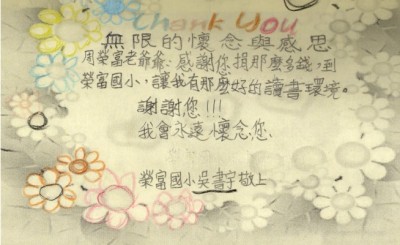 Thank You
無限的懷念與感思
周榮富老爺爺：感謝您捐那麼多錢，到
榮富國小，讓我有那麼好的讀書環境。
謝謝您!!!
我會永遠懷念您.
榮富國小吳書宇敬上